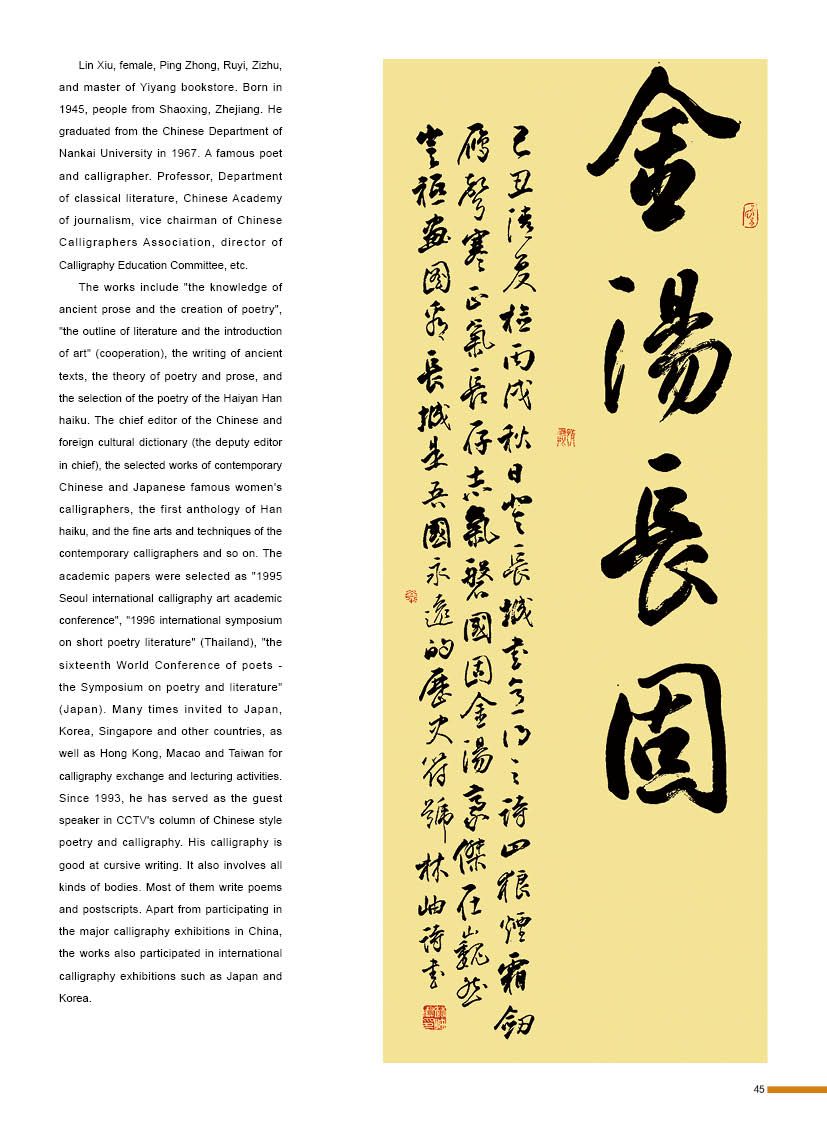 Lin Xiu, female, Ping Zhong, Ruyi, Zizhu,
and master of Yiyang bookstore. Born in
1945, people from Shaoxing, Zhejiang. He
graduated from the Chinese Department of
Nankai University in 1967. A famous poet
and calligrapher. Professor, Department
of classical literature, Chinese Academy
of journalism, vice chairman of Chinese
Calligraphers Association, director of
Calligraphy Education Committee, etc.
The works include "the knowledge of
ancient prose and the creation of poetry",
"the outline of literature and the introduction
of art" (cooperation), the writing of ancient
texts, the theory of poetry and prose, and
the selection of the poetry of the Haiyan Han
haiku. The chief editor of the Chinese and
foreign cultural dictionary (the deputy editor
in chief), the selected works of contemporary
Chinese and Japanese famous women's
calligraphers, the first anthology of Han
haiku, and the fine arts and techniques of the
contemporary calligraphers and so on. The
academic papers were selected as "1995
Seoul international calligraphy art academic
conference", "1996 international symposium
on short poetry literature" (Thailand), "the
sixteenth World Conference of poets -
the Symposium on poetry and literature"
(Japan). Many times invited to Japan,
Korea, Singapore and other countries, as
well as Hong Kong, Macao and Taiwan for
calligraphy exchange and lecturing activities.
Since 1993, he has served as the guest
speaker in CCTV's column of Chinese style
poetry and calligraphy. His calligraphy is
good at cursive writing. It also involves all
kinds of bodies. Most of them write poems
and postscripts. Apart from participating in
the major calligraphy exhibitions in China,
the works also participated in international
calligraphy exhibitions such as Japan and
Korea.
金湯長固
己丑清夏檢丙戌秋日登長城書之詩曰狼煙霜劍
雁聲寒正氣長存志氣磐國固金湯豪傑在巍然
圖長城是吾國永遠的歷史符號林岫詩書
45